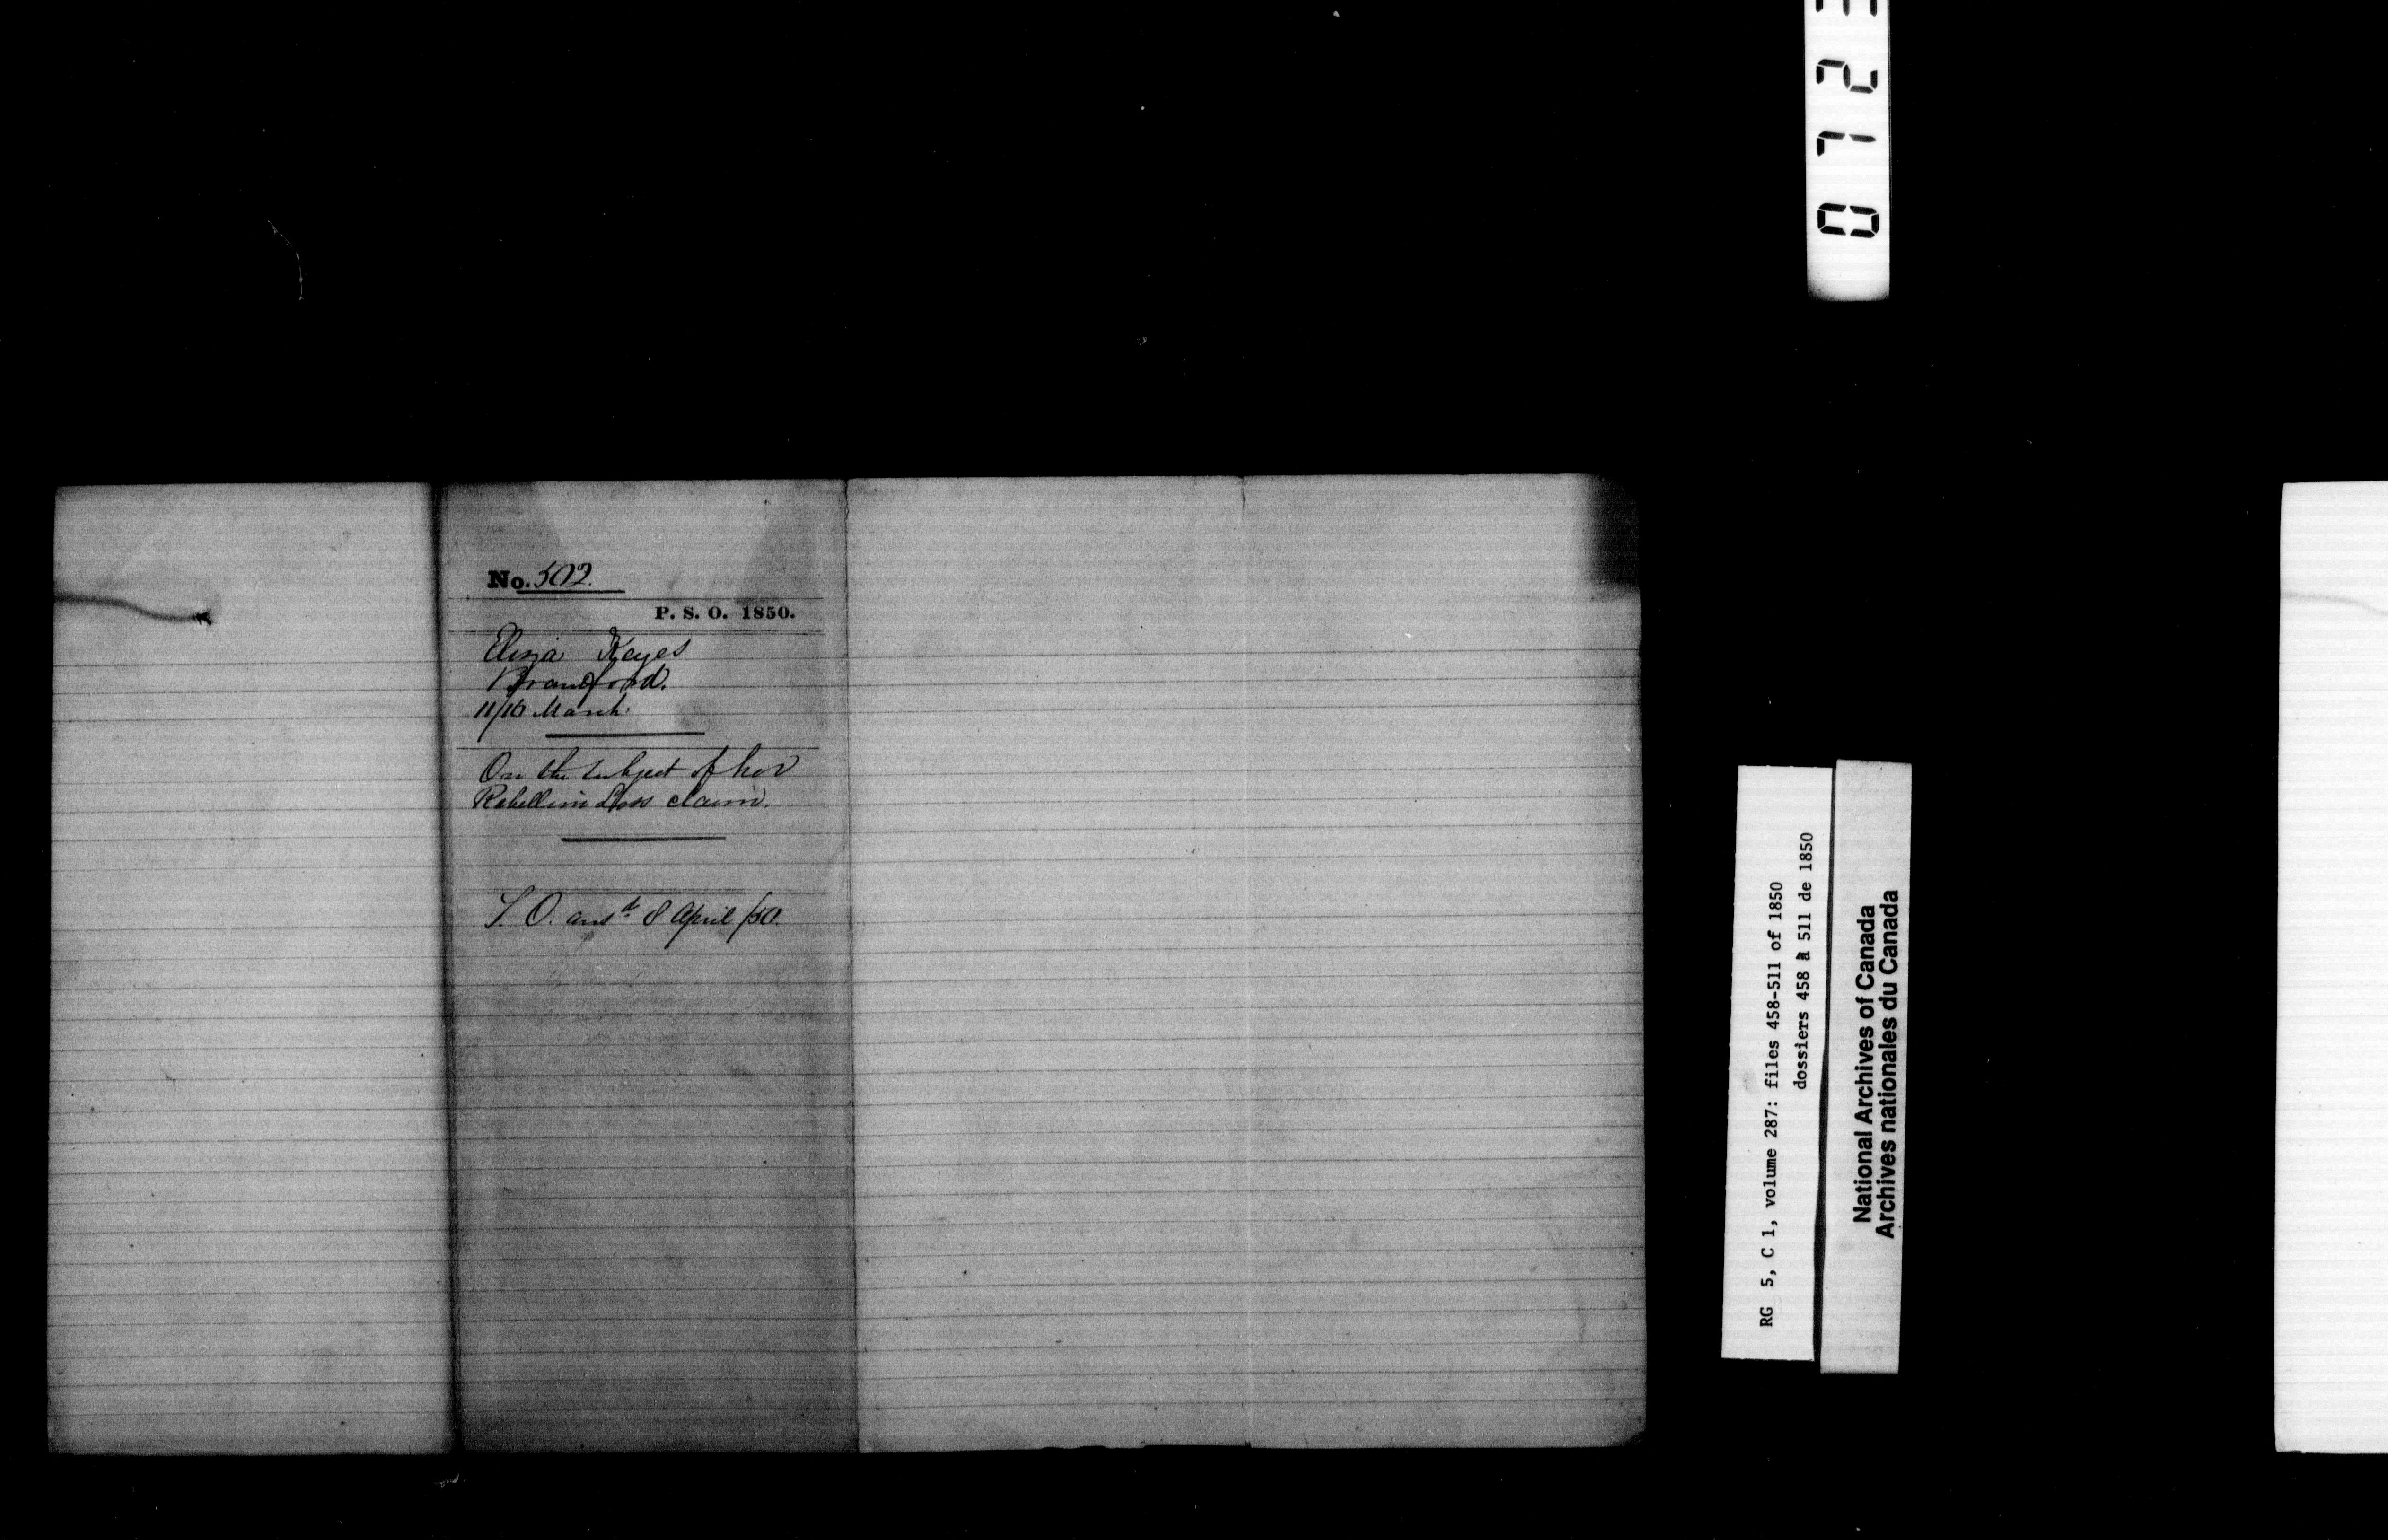 No. 502.
P. S. O. 1850.
Eliza Kayes
Brantford.
11/16 March.
On the subject of her
Rebellion Loss claim.
S. O. ansd. 8 April /50.
RG 5, C 1, volume 287: files 458-511 of 1850
dossiers 458 à 511 de 1850
National Archives of Canada
Archives nationales du Canada